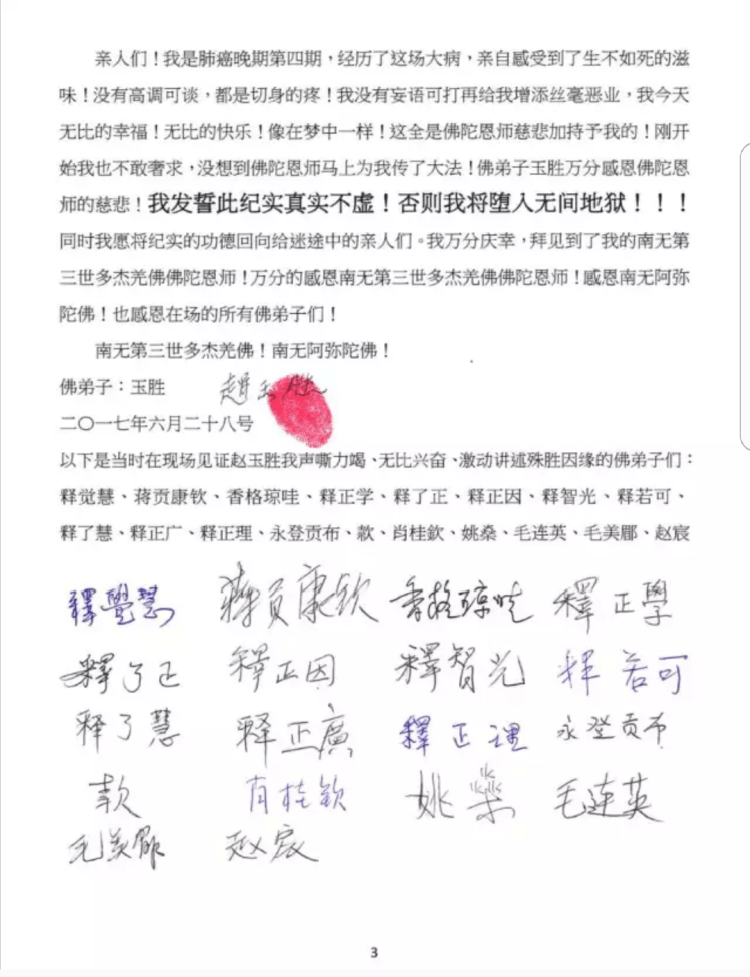 亲人们！我是肺癌晚期第四期，经历了这场大病，亲自感受到了生不如死的滋
味！没有高调可谈，都是切身的疼！我没有妄语可打再给我增添丝毫恶业，我今天
无比的幸福！无比的快乐！像在梦中一样！这全是佛陀恩师慈悲加持予我的！刚开
始我也不敢奢求，没想到佛陀恩师马上为我传了大法！佛弟子玉胜万分感恩佛陀恩
师的慈悲！我发誓此纪实真实不虚！否则我将堕入无间地狱！！！
同时我愿将纪实的功德回向给迷途中的亲人们。我万分庆幸，拜见到了我的南无第
三世多杰羌佛佛陀恩师！万分的感恩南无第三世多杰羌佛佛陀恩师！感恩南无阿弥
陀佛！也感恩在场的所有佛弟子们！
南无第三世多杰羌佛！南无阿弥陀佛！
佛弟子：玉胜 赵玉胜
二〇一七年六月二十八号
以下是当时在现场见证赵玉胜我声嘶力竭、无比兴奋、激动讲述殊胜因缘的佛弟子们：
释觉慧、蒋贡康钦、香格琼哇、释正学、释了正、释正因、释智光、释若可、
释了慧、释正广、释正理、永登贡布、款、肖桂欽、姚燊、毛连英、毛美郿、赵宸
釋覺慧 蒋貢康钦 香格琼哇 釋正學
釋了正 釋正因 釋智光 释若可
释了慧 释正廣 釋正理 永登贡布
款 肖桂钦 姚燊 毛连英
毛美郿 赵宸
3